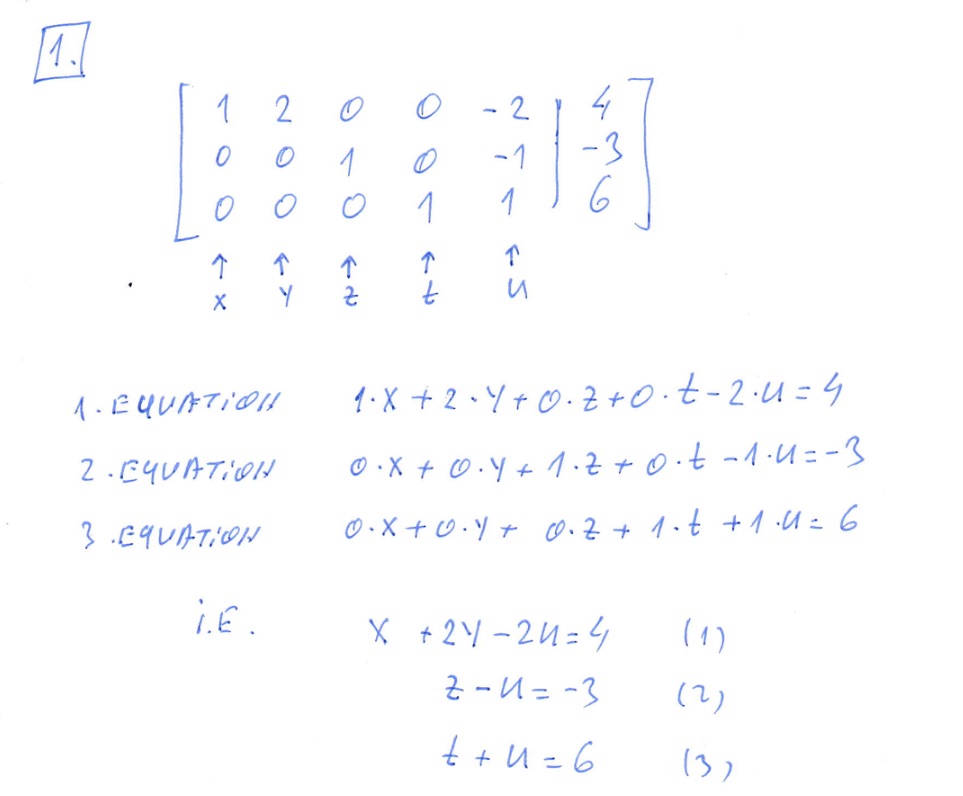 1.
1 2 0 0 -2 | 4
0 0 1 0 -1 | -3
0 0 0 1 1 | 6
↑ ↑ ↑ ↑ ↑
x y z t u
1. EQUATION 1·x + 2·y + 0·z + 0·t - 2·u = 4
2. EQUATION 0·x + 0·y + 1·z + 0·t - 1·u = -3
3. EQUATION 0·x + 0·y + 0·z + 1·t + 1·u = 6
i.E. x + 2y - 2u = 4 (1)
z - u = -3 (2)
t + u = 6 (3)